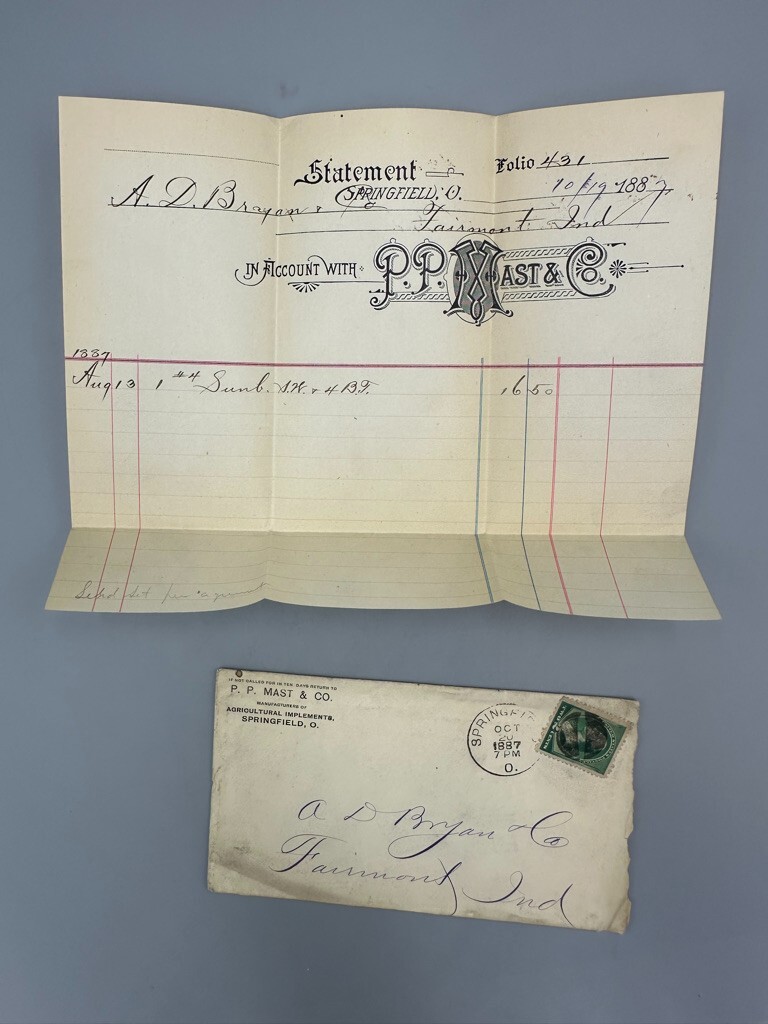 Statement
Folio 431
SPRINGFIELD, O.
10/19 1887
A. D. Bryan & Co
Fairmont Ind
IN ACCOUNT WITH P.P. MAST & CO.
1887
Aug 13 1 #4 Sunb. S.W. & 4 B.F. 16 50
Send
IF NOT CALLED FOR IN TEN DAYS RETURN TO
P. P. MAST & CO.
MANUFACTURERS OF
AGRICULTURAL IMPLEMENTS,
SPRINGFIELD, O.
OCT
20
1887
7 PM
O.
A D Bryan & Co
Fairmont Ind